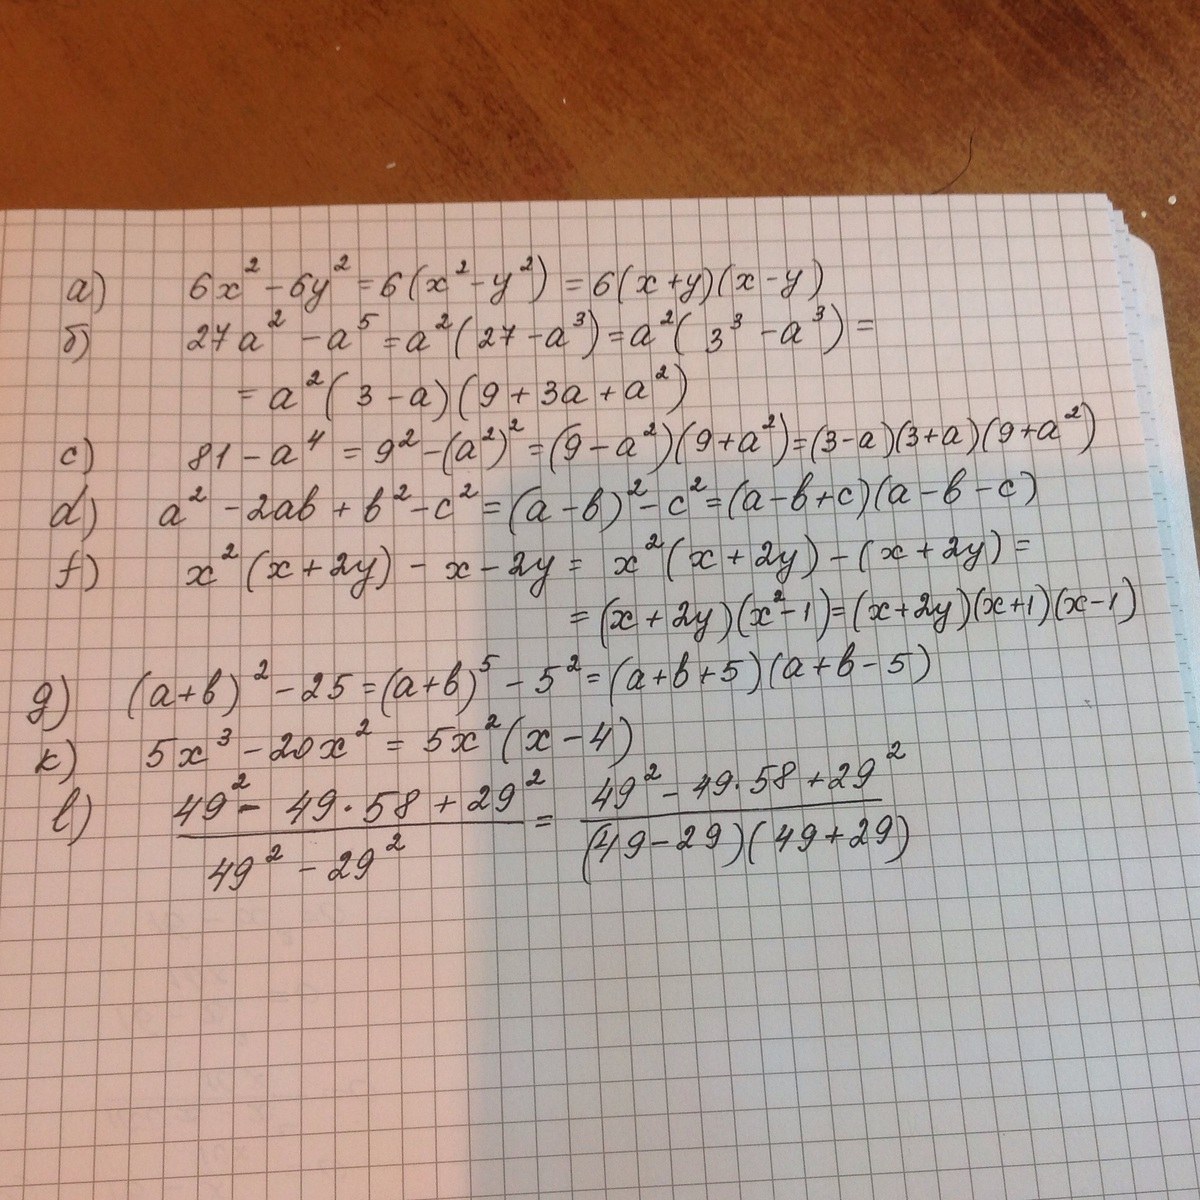 а) 6x² - 6y² = 6(x² - y²) = 6(x+y)(x-y)
б) 27a² - a⁵ = a²(27 - a³) = a²(3³ - a³) =
= a²(3 - a)(9 + 3a + a²)
c) 81 - a⁴ = 9² - (a²)² = (9 - a²)(9 + a²) = (3-a)(3+a)(9+a²)
d) a² - 2ab + b² - c² = (a - b)² - c² = (a - b + c)(a - b - c)
f) x²(x + 2y) - x - 2y = x²(x + 2y) - (x + 2y) =
= (x + 2y)(x² - 1) = (x + 2y)(x+1)(x-1)
g) (a+b)² - 25 = (a+b)⁵ - 5² = (a+b+5)(a+b-5)
к) 5x³ - 20x² = 5x²(x - 4)
l) 49² - 49·58 + 29² = 49² - 49·58 + 29²
49² - 29² (49 - 29)(49 + 29)